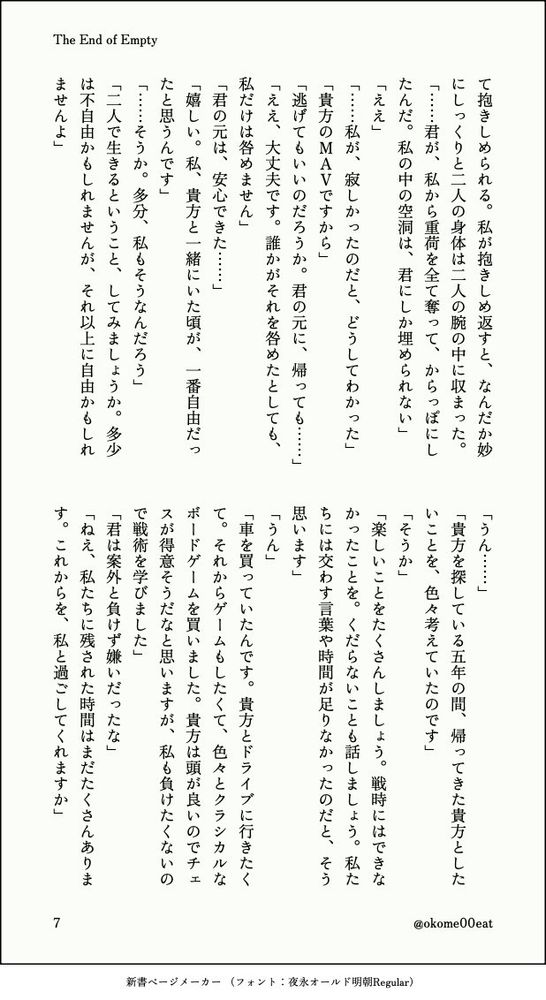 The End of Empty
て抱きしめられる。私が抱きしめ返すと、なんだか妙
にしっくりと二人の身体は二人の腕の中に収まった。
「……君が、私から重荷を全て奪って、からっぽにし
たんだ。私の中の空洞は、君にしか埋められない」
「ええ」
「……私が、寂しかったのだと、どうしてわかった」
「貴方のMAVですから」
「逃げてもいいのだろうか。君の元に、帰っても……」
「ええ、大丈夫です。誰かがそれを咎めたとしても、
私だけは咎めません」
「君の元は、安心できた……」
「嬉しい。私、貴方と一緒にいた頃が、一番自由だっ
たと思うんです」
「……そうか。多分、私もそうなんだろう」
「二人で生きるということ、してみましょうか。多少
は不自由かもしれませんが、それ以上に自由かもしれ
ませんよ」
「うん……」
「貴方を探している五年の間、帰ってきた貴方とした
いことを、色々考えていたのです」
「そうか」
「楽しいことをたくさんしましょう。戦時にはできな
かったことを。くだらないことも話しましょう。私た
ちには交わす言葉や時間が足りなかったのだと、そう
思います」
「うん」
「車を買っていたんです。貴方とドライブに行きたく
て。それからゲームもしたくて、色々とクラシカルな
ボードゲームを買いました。貴方は頭が良いのでチェ
スが得意そうだなと思いますが、私も負けたくないの
で戦術を学びました」
「君は案外と負けず嫌いだったな」
「ねえ、私たちに残された時間はまだたくさんありま
す。これからを、私と過ごしてくれますか」
7
@okome00eat
新書ページメーカー （フォント：夜永オールド明朝Regular）